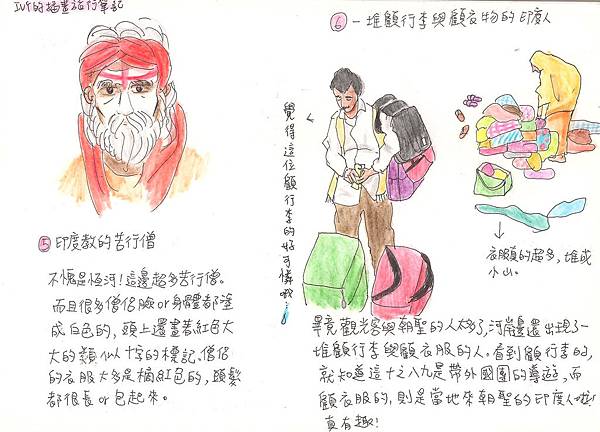 IVY的插畫旅行筆記
⑤ 印度教的苦行僧
不愧是恆河!這邊超多苦行僧。
而且很多僧侶臉or身體都塗
成白色的,頭上還畫著紅色大
大的類似十字的標記。僧侶
的衣服大多是橘紅色的,頭髮
都很長or包起來。
⑥ 一堆顧行李與顧衣物的印度人
覺得這位顧行李的好可憐哦…
衣服真的超多,堆成
小山。
畢竟觀光客與朝聖的人太多了,河岸邊還出現了一
堆顧行李與顧衣服的人。看到顧行李的,
就知道這十之八九是帶外國團的導遊,而
顧衣服的,則是當地來朝聖的印度人啦!
真有趣!